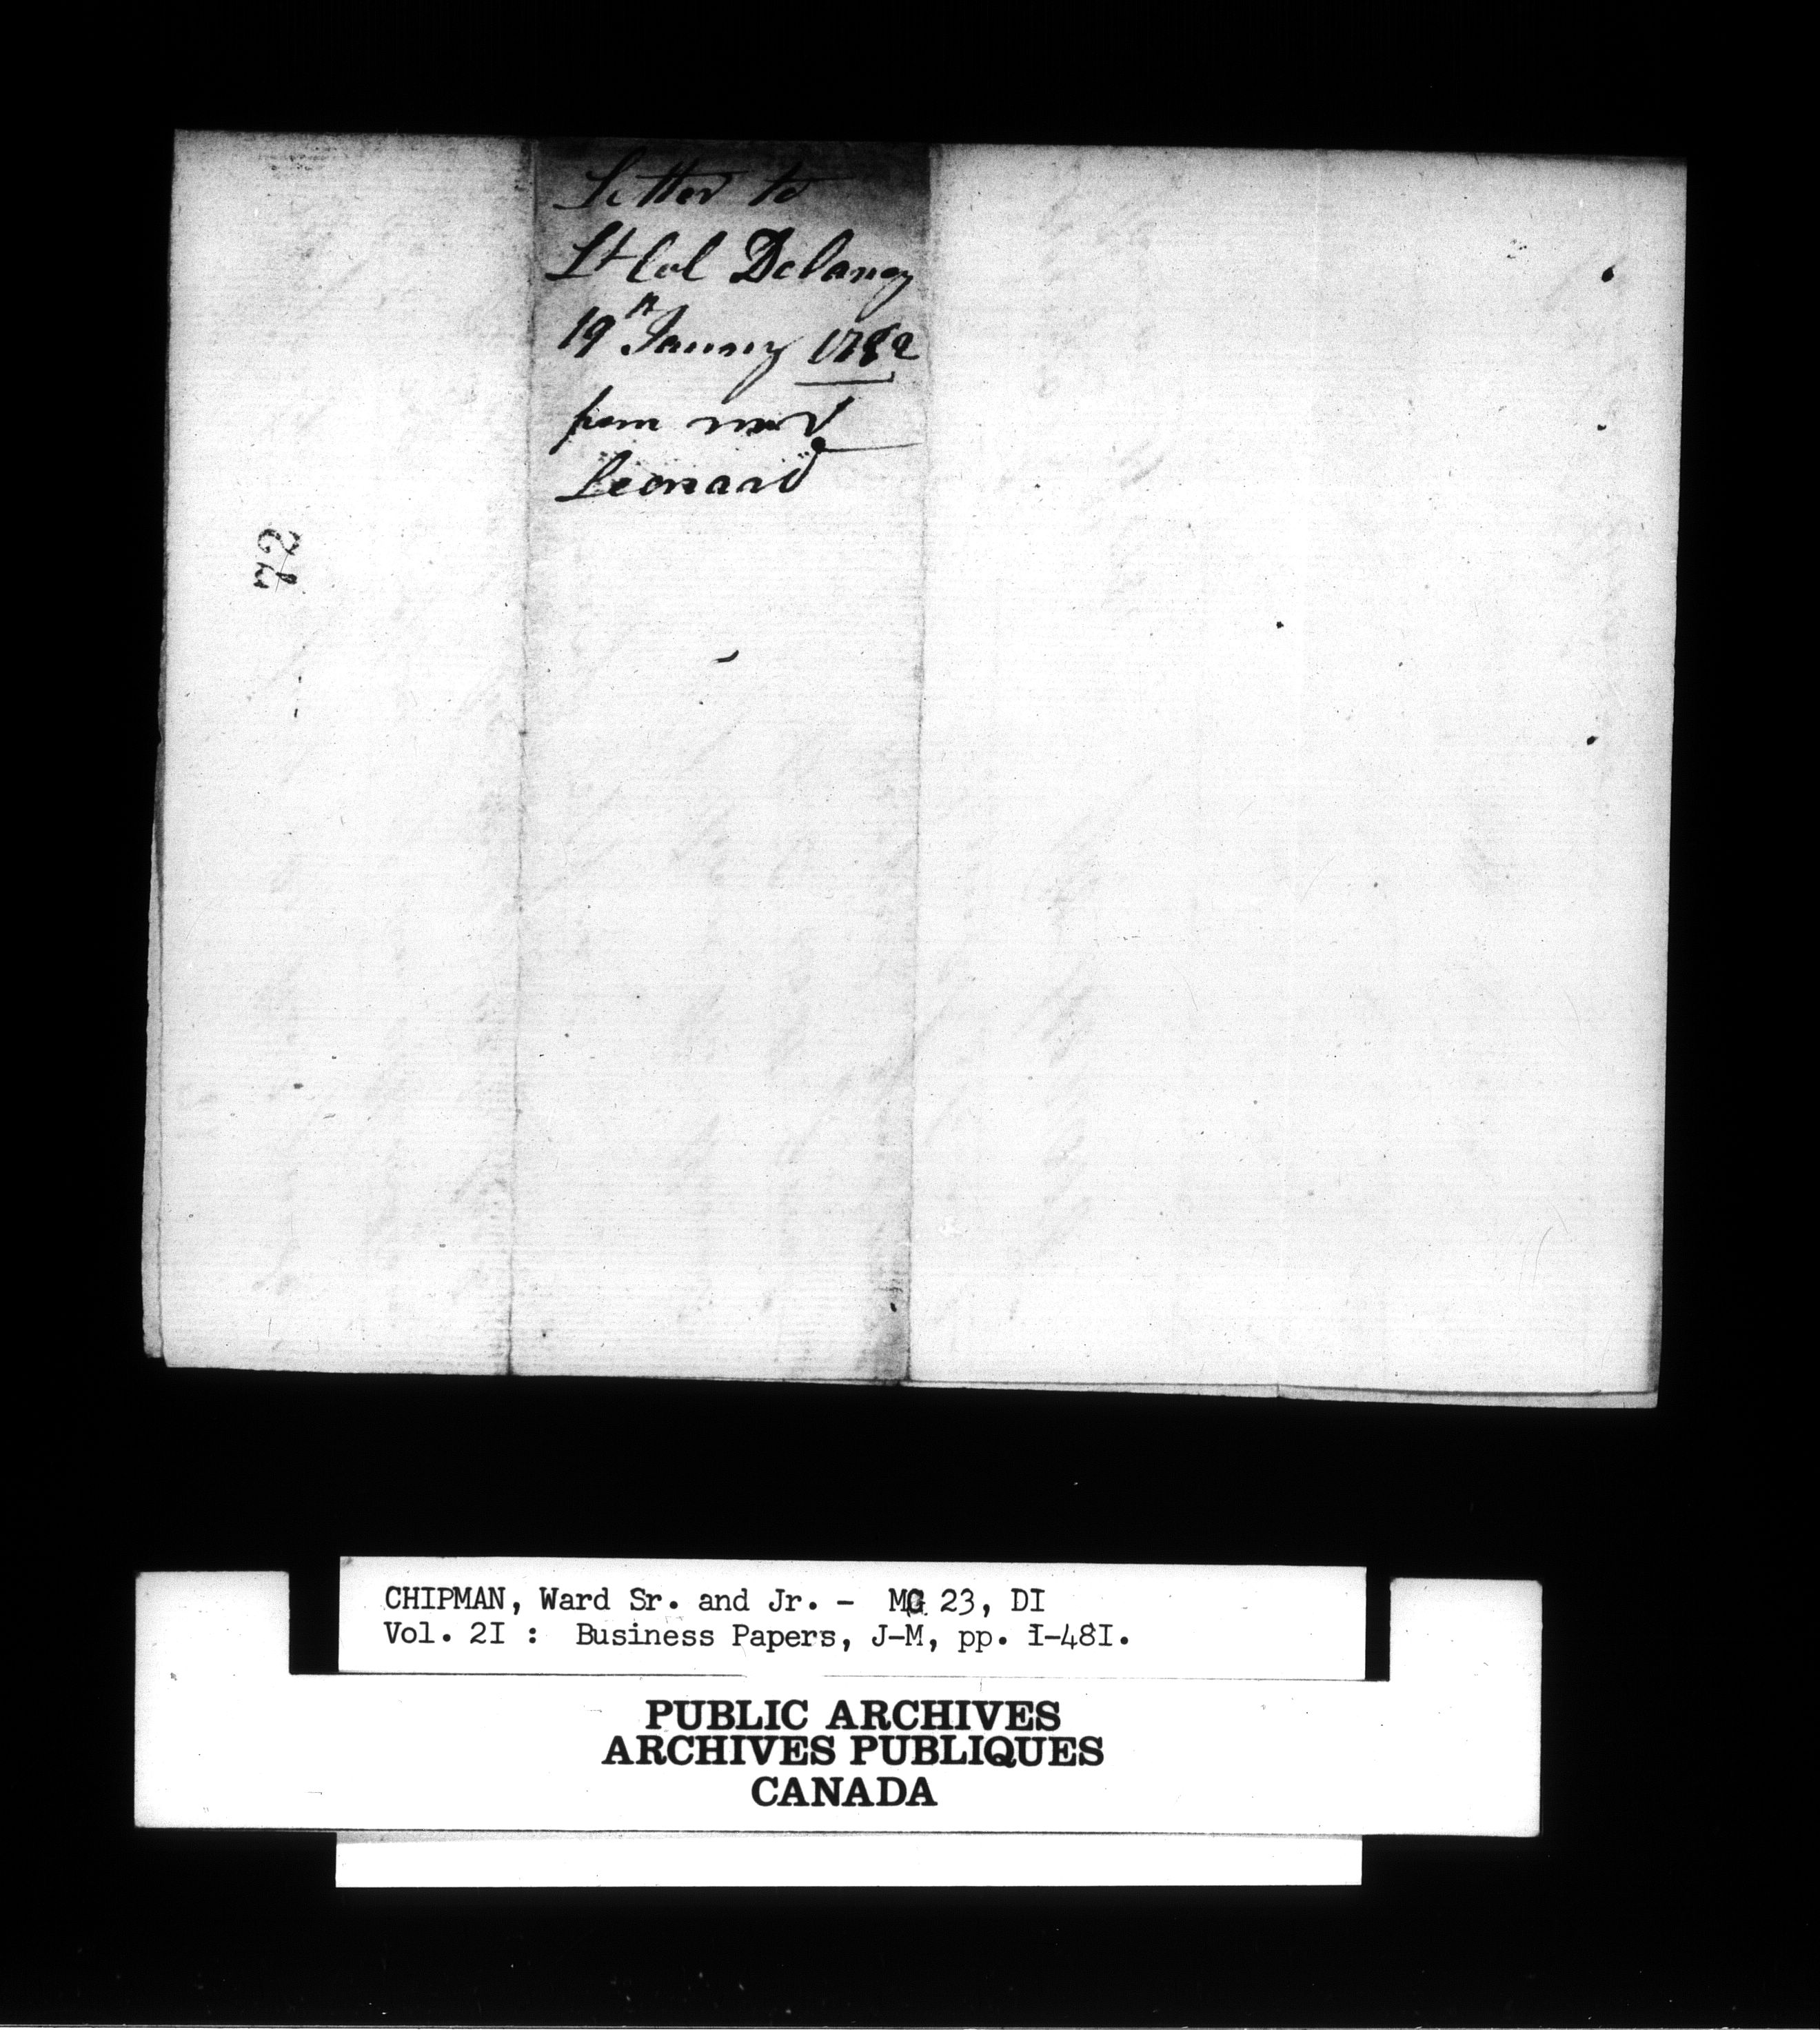 Letter to
Lt Col Delancy
19th Janury 1782
from mrs
Leonard
72
CHIPMAN, Ward Sr. and Jr. - MG 23, DI
Vol. 2I : Business Papers, J-M, pp. I-48I.
PUBLIC ARCHIVES
ARCHIVES PUBLIQUES
CANADA